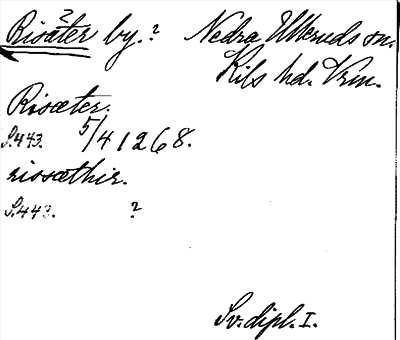 Risäter by.? Nedra Ulleruds sn.
?
Kils hd. Vrm.
Risæter.
S.443. 5/4 1268.
risæthir.
S.443. ?
Sv. dipl. I.